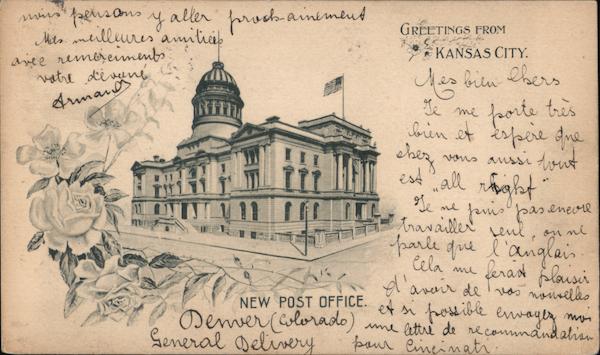 GREETINGS FROM
KANSAS CITY.
Mes bien Chers
Je me porte très
bien et espère que
chez vous aussi tout
est "all right"
Je ne puis pas encore
travailler seul, on ne
parle que l'anglais.
Cela me ferait plaisir
d'avoir de vos nouvelles
et si possible envoyez moi
une lettre de recommandation
pour Cincinati.
nous pensons y aller prochainement
Mes meilleures amitiés
avec remerciments
votre dévoué
Armand
NEW POST OFFICE.
Denver (Colorado)
General Delivery